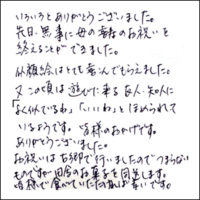 いろいろとありがとうございました。
先日、無事に母の喜寿のお祝いを
終えることができました。
似顔絵はとても喜んでもらえました。
又この頃は遊びに来る友人・知人に
「よく似てるね」「いいね」とほめられて
いるようです。皆様のおかげです。
ありがとうございました。
お祝いは古郷で行いましたのでつまらない
ものですが田舎のお菓子を同送します。
皆様で食べていただければ幸いです。